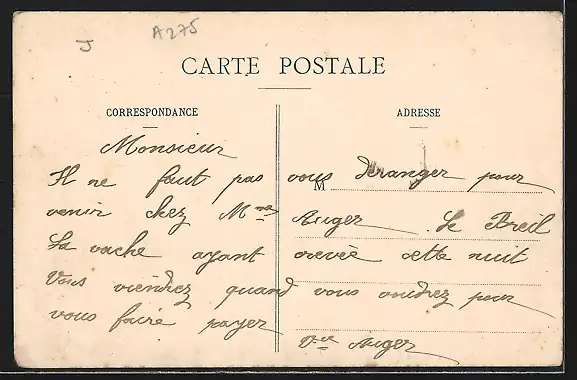 J
A275
CARTE POSTALE
CORRESPONDANCE
ADRESSE
M
Monsieur
Il ne faut pas vous déranger pour
venir chez Mme Auger Le Breil
La vache ayant crevée cette nuit
Vous viendrez quand vous voudrez pour
vous faire payer
Vve Auger